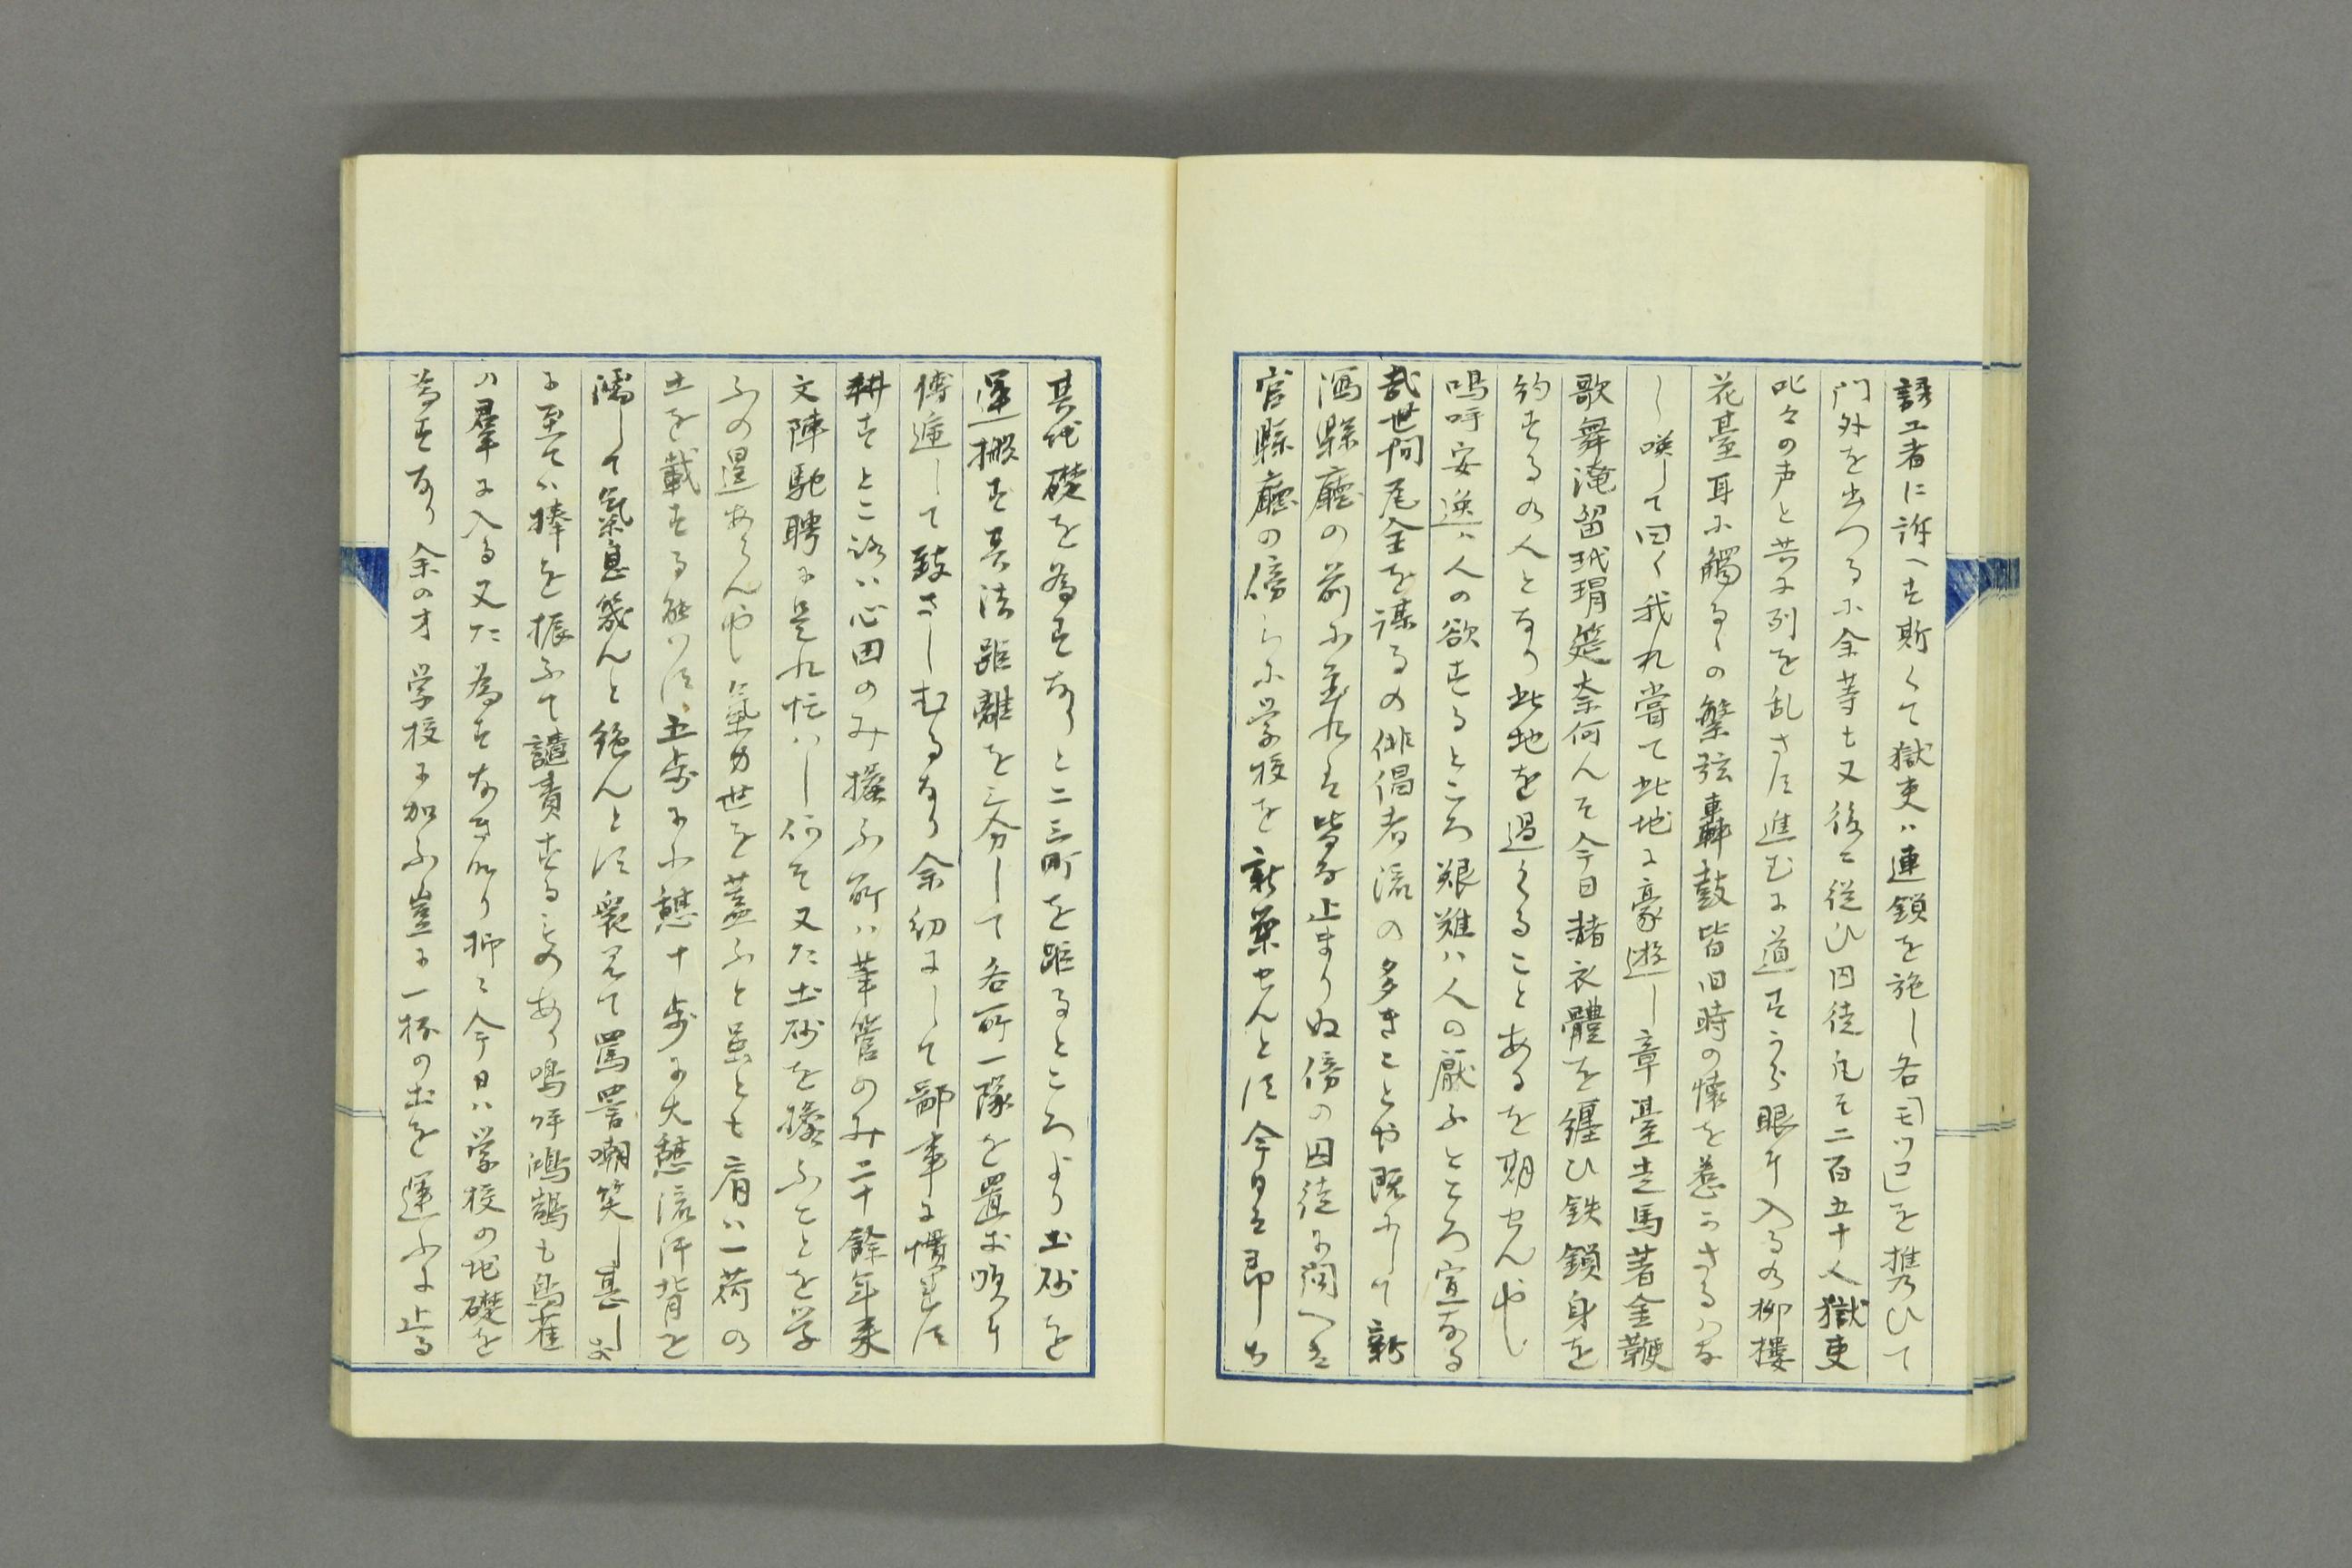 誘工者に許へす斯くて獄吏ハ連鎖を施し各「モツコ」を携ひて
門外を出つるに余等も又後に従ひ囚徒凡そ二百五十人獄吏
叱々の声と共に列を乱さす進むに道すから眼に入るの柳楼
花臺耳に觸るゝの繁弦轟鼓皆旧時の懐を惹かさるハな
し咲して曰く我れ嘗て此地に豪遊し章臺走馬著金鞭
歌舞淹留玳瑁筵奈何んそ今日赭衣體を纏ひ鉄鎖身を
約するの人となり此地を過くることあるを期せんや
嗚呼安逸ハ人の欲するところ艱難ハ人の厭ふところ宜なる
哉世間尾全を謀るの俳倡者流の多きことや既にして新
潟縣廳の前に至れは皆な止まりぬ傍の囚徒に問へは
官縣廳の傍らに学校を新築せんとす今日は即ち
其地礎を為すなりと二三町を距るところより土砂を
運搬す其法距離を三分して各所一隊を置
傳逓して致さしむるなり余幼にして鄙事に慣れす
耕すところハ心田のみ操ふ所ハ筆管のみ二十餘年来
文陣馳聘に是れ忙ハし何そ又た土砂を擔ふことを学
ふの遑あらんや氣力世を蓋ふと虽とも肩ハ一荷の
土を載する能ハす五歩に小憩十歩に大憩流汗背を
濡して氣息幾んと絶んとす衆見て罵詈嘲笑し甚し
に至てハ捧を振ふて譴責するものあり嗚呼鴻鵠も鳥雀
の羣に入る又た為すなきなり抑々今日ハ学校の地礎を
為すなり余の才学校に加ふ豈に一杯の土を運ふに止る